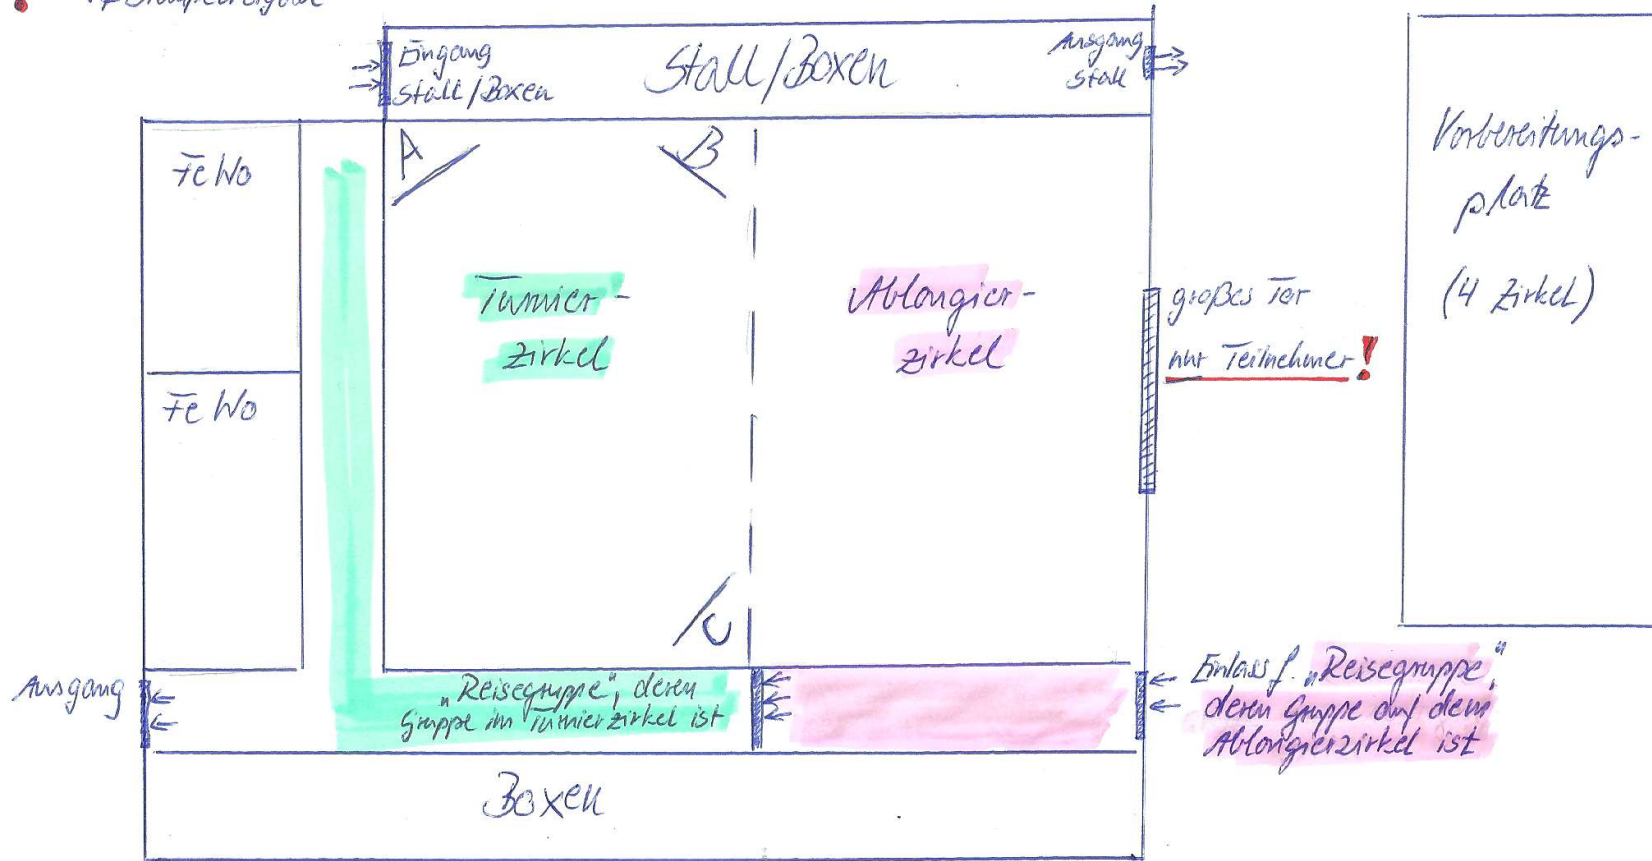 Eingang
Stall/Boxen
Stall/Boxen
Ausgang
Stall
Vorbereitungs-
platz
(4 Zirkel)
FeWo
A
B
Turnier-
zirkel
Ablongier-
zirkel
großes Tor
nur Teilnehmer!
FeWo
C
Ausgang
„Reisegruppe“, deren
Gruppe im Turnierzirkel ist
Einlass f. „Reisegruppe“,
deren Gruppe auf dem
Ablongierzirkel ist
Boxen